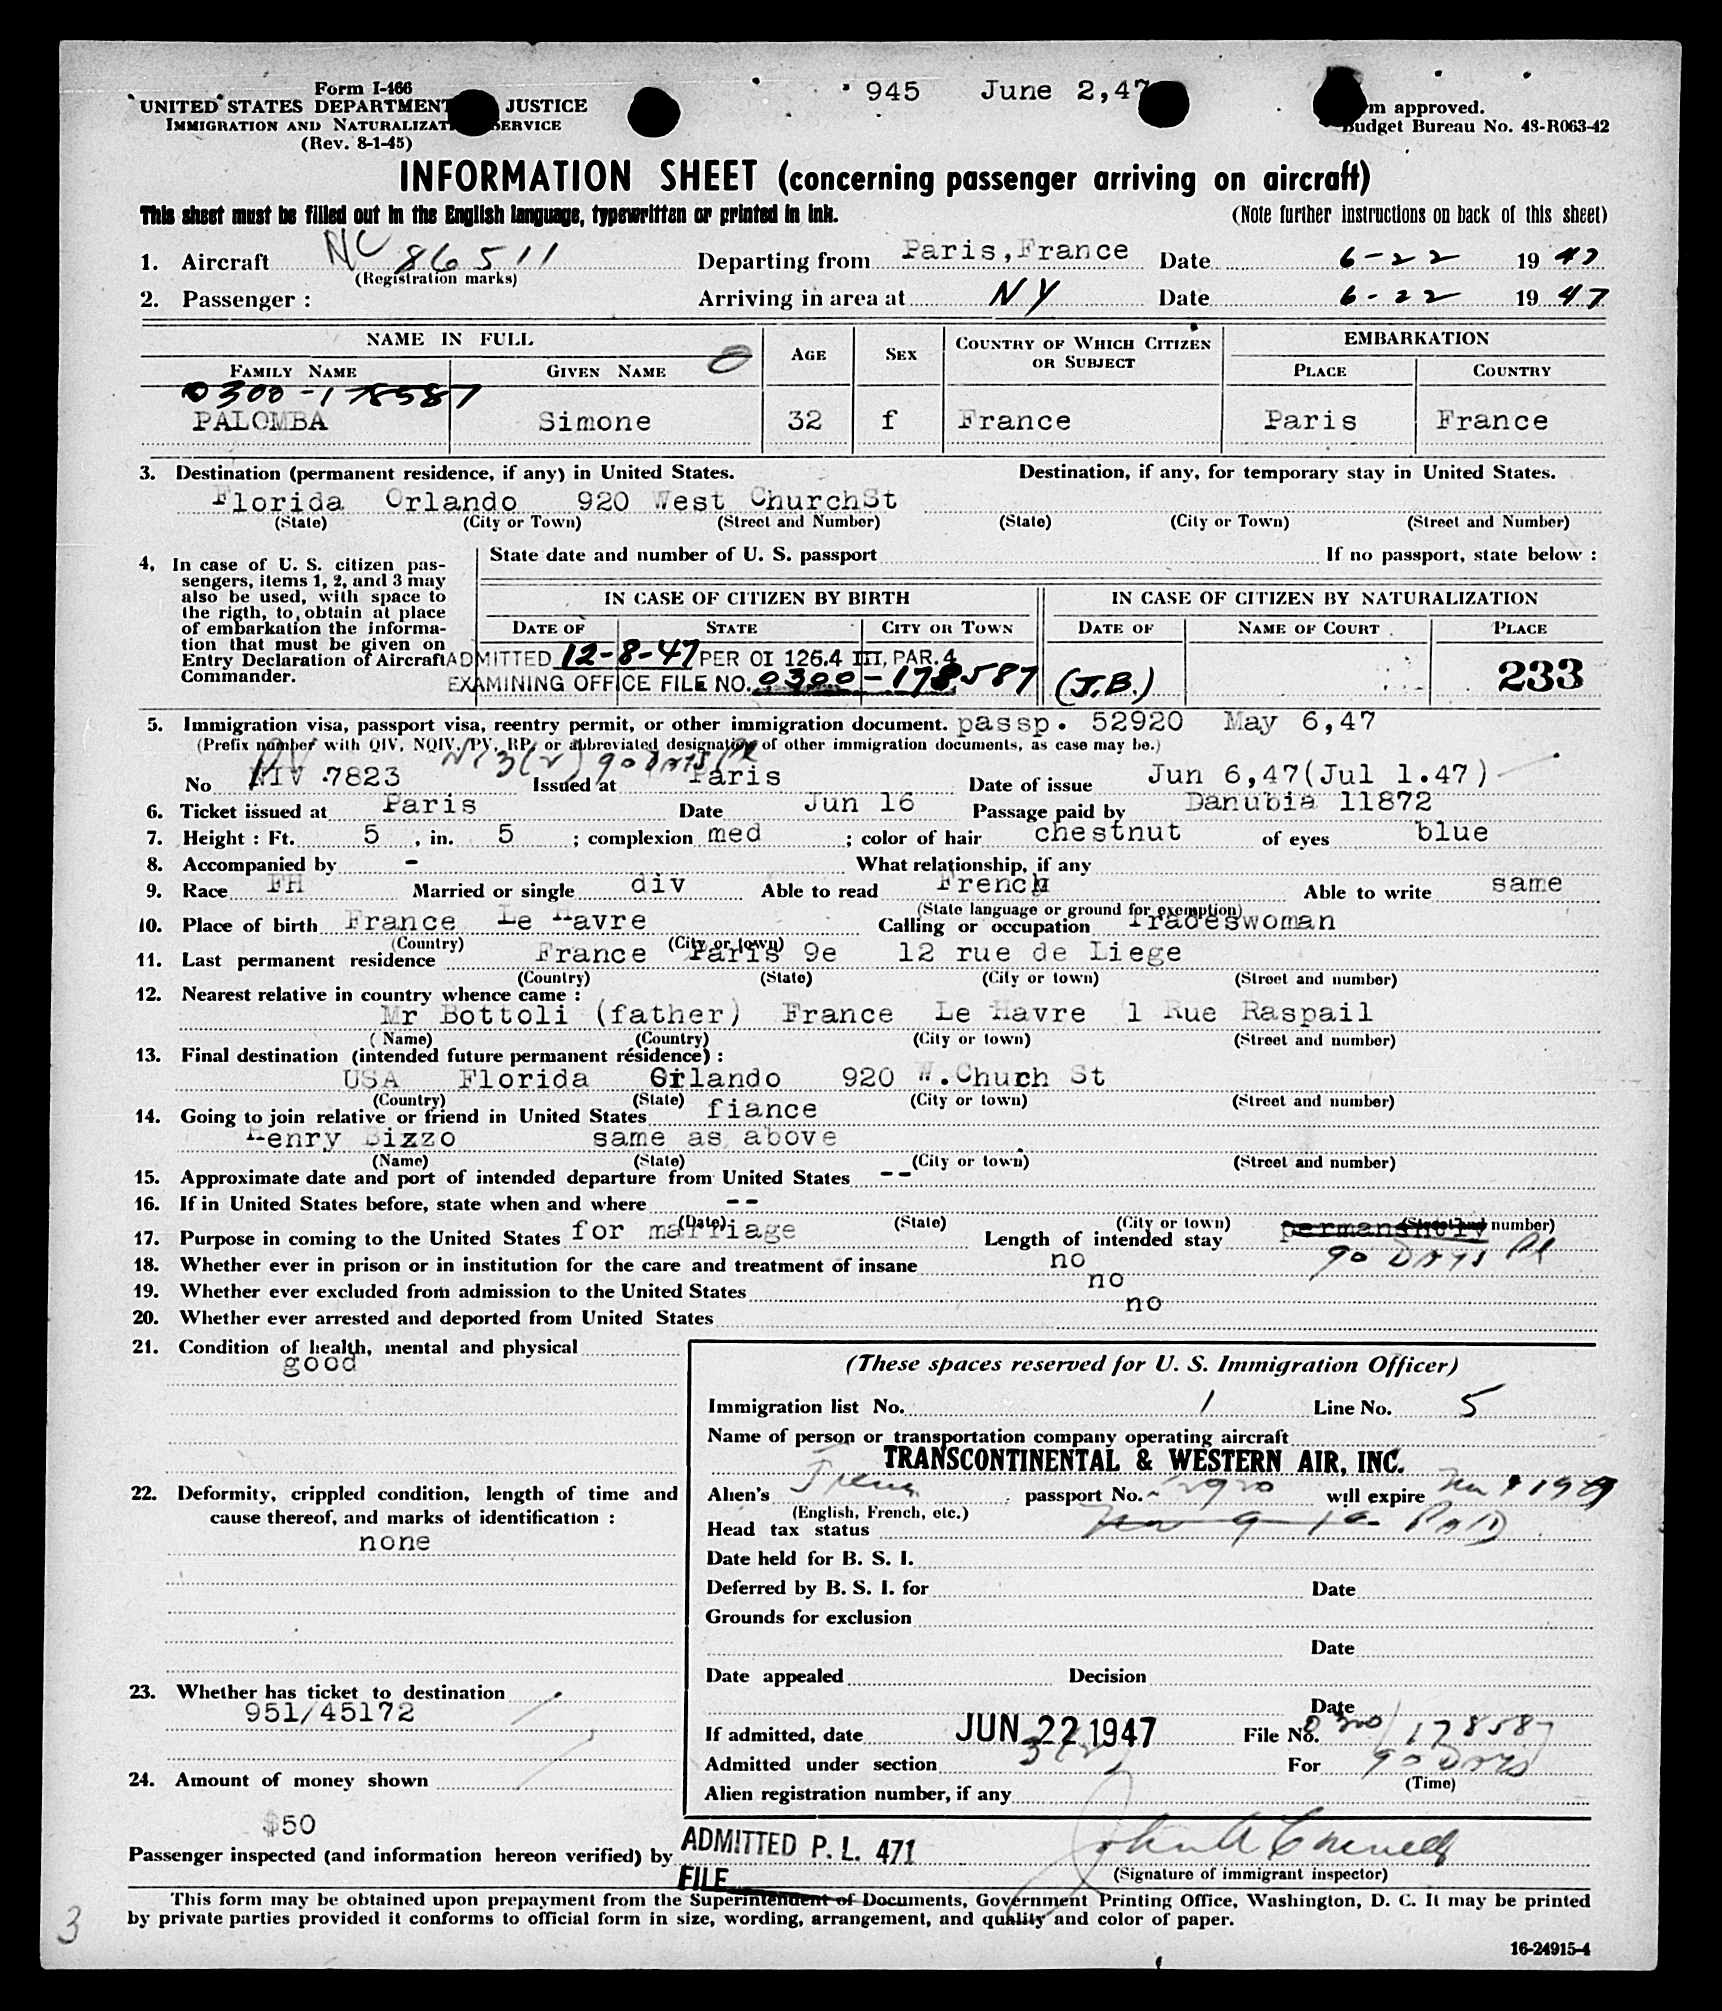 Form I-466
945 June 2,47
UNITED STATES DEPARTMENT JUSTICE
m approved.
IMMIGRATION AND NATURALIZAT SERVICE
Budget Bureau No. 43-R063-42
(Rev. 8-1-45)
INFORMATION SHEET (concerning passenger arriving on aircraft)
This sheet must be filled out in the English language, typewritten or printed in ink.
(Note further instructions on back of this sheet)
1. Aircraft NC 86511 Departing from Paris,France Date 6-22 1947
(Registration marks)
2. Passenger : Arriving in area at NY Date 6-22 1947
NAME IN FULL
AGE SEX COUNTRY OF WHICH CITIZEN OR SUBJECT EMBARKATION
FAMILY NAME GIVEN NAME PLACE COUNTRY
0300-178587
PALOMBA Simone 32 f France Paris France
3. Destination (permanent residence, if any) in United States. Destination, if any, for temporary stay in United States.
Florida Orlando 920 West ChurchSt
(State) (City or Town) (Street and Number) (State) (City or Town) (Street and Number)
4, In case of U. S. citizen pas-
sengers, items 1, 2, and 3 may
also be used, with space to
the rigth, to obtain at place
of embarkation the informa-
tion that must be given on
Entry Declaration of Aircraft
Commander.
State date and number of U. S. passport If no passport, state below :
IN CASE OF CITIZEN BY BIRTH IN CASE OF CITIZEN BY NATURALIZATION
DATE OF STATE CITY OR TOWN DATE OF NAME OF COURT PLACE
ADMITTED 12-8-47 PER OI 126.4 III, PAR. 4
EXAMINING OFFICE FILE NO. 0300-178587 (J.B.) 233
5. Immigration visa, passport visa, reentry permit, or other immigration document. passp. 52920 May 6,47
(Prefix number with QIV, NQIV, PV, RP, or abbreviated designation of other immigration documents, as case may be.)
3(2) 90 DAYS
No NIV 7823 Issued at Paris Date of issue Jun 6,47(Jul 1.47)
6. Ticket issued at Paris Date Jun 16 Passage paid by Danubia 11872
7. Height : Ft. 5 , in. 5 ; complexion med ; color of hair chestnut of eyes blue
8. Accompanied by - What relationship, if any
9. Race FH Married or single div Able to read French Able to write same
(State language or ground for exemption)
10. Place of birth France Le Havre Calling or occupation Tradeswoman
(Country) (City or town)
11. Last permanent residence France Paris 9e 12 rue de Liege
(Country) (State) (City or town) (Street and number)
12. Nearest relative in country whence came :
Mr Bottoli (father) France Le Havre 1 Rue Raspail
(Name) (Country) (City or town) (Street and number)
13. Final destination (intended future permanent résidence) :
USA Florida Orlando 920 W.Chuch St
(Country) (State) (City or town) (Street and number)
14. Going to join relative or friend in United States fiance
Henry Bizzo same as above
(Name) (State) (City or town) (Street and number)
15. Approximate date and port of intended departure from United States --
16. If in United States before, state when and where --
(Date) (State) (City or town) (Street and number)
17. Purpose in coming to the United States for marriage Length of intended stay permanently
90 DAYS
18. Whether ever in prison or in institution for the care and treatment of insane no
19. Whether ever excluded from admission to the United States no
20. Whether ever arrested and deported from United States no
21. Condition of health, mental and physical
good
22. Deformity, crippled condition, length of time and
cause thereof, and marks of identification :
none
23. Whether has ticket to destination
951/45172
24. Amount of money shown
$50
(These spaces reserved for U. S. Immigration Officer)
Immigration list No. 1 Line No. 5
Name of person or transportation company operating aircraft
TRANSCONTINENTAL & WESTERN AIR, INC.
Alien's passport No. will expire
(English, French, etc.)
Head tax status PAID
Date held for B. S. I.
Deferred by B. S. I. for Date
Grounds for exclusion
Date
Date appealed Decision
Date
If admitted, date JUN 22 1947 File No. 0300/178587
Admitted under section 3(2) For 90 DAYS
(Time)
Alien registration number, if any
Passenger inspected (and information hereon verified) by
ADMITTED P. L. 471
FILE
(Signature of immigrant inspector)
This form may be obtained upon prepayment from the Superintendent of Documents, Government Printing Office, Washington, D. C. It may be printed
by private parties provided it conforms to official form in size, wording, arrangement, and quality and color of paper.
3
16-24915-4